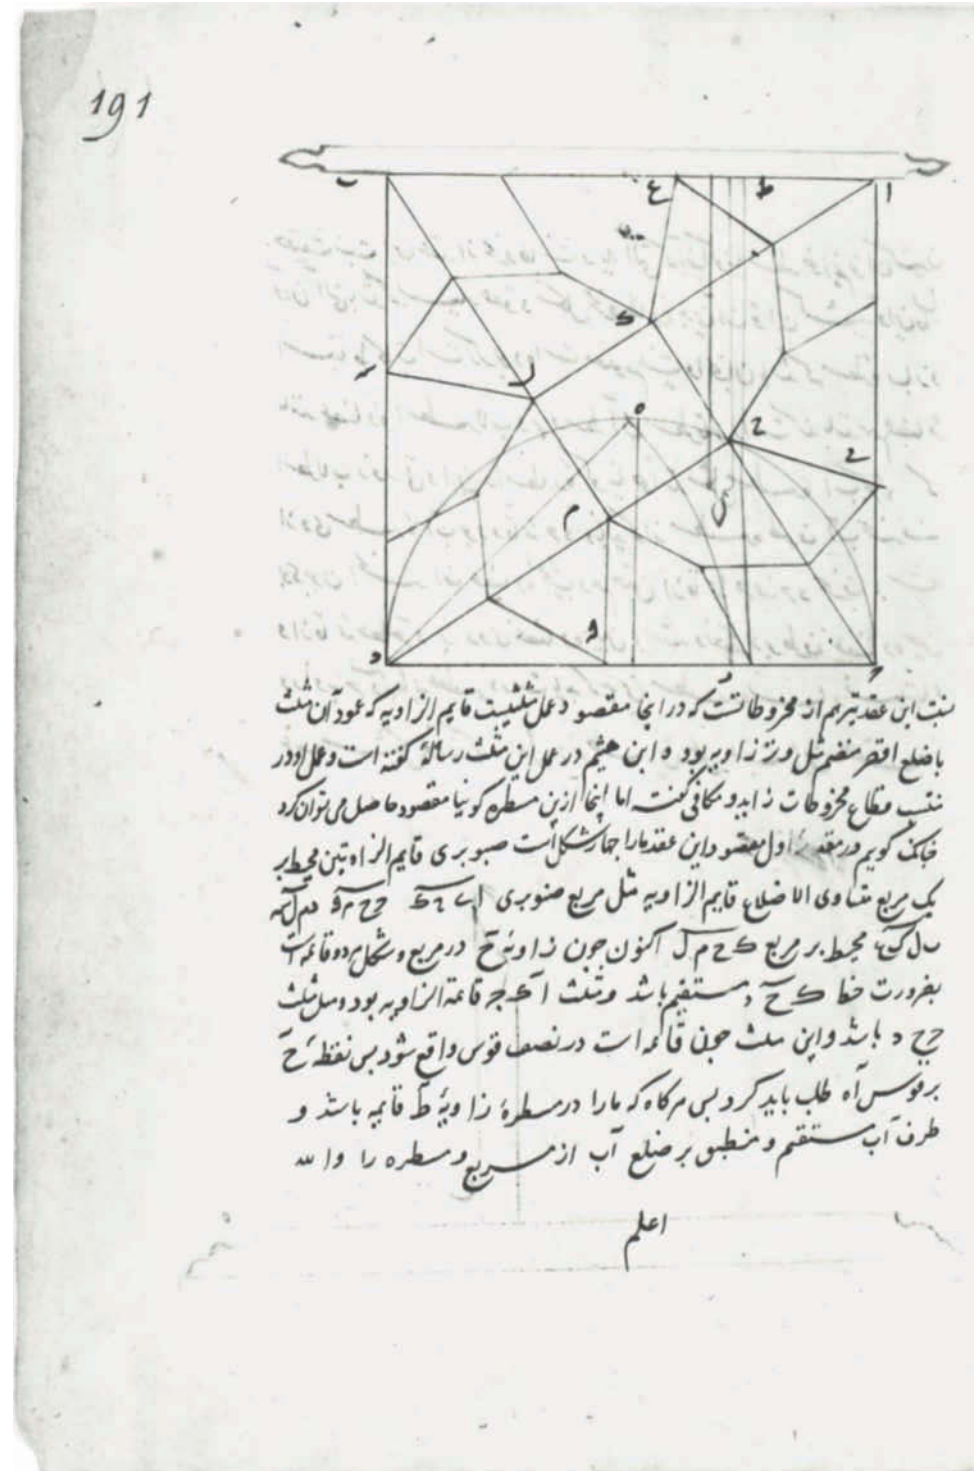 191
ب ع ط ا
ک
ل
ه
ح
ی
م
د
نسبت این عقد تیر هم از مخروطاتست که در اینجا مقصود عمل مثلثیست قایم الزاویه که عمود آن مثلث
با ضلع اقصر منضم مثل وتر زاویه بود و ابن هیثم در عمل این مثلث رسالهٔ گفته است و عمل او در
قطاع مخروطات زاید و مکافی گفت اما اینجا ازین مسطره کونیا مقصود حاصل می توان کرد
گویم در مقدمهٔ اول مقصود این عقد ما را چهار شکل است صنوبری قایم الزاویتین محیط بر
یک مربع متساوی الاضلاع قایم الزاویه مثل مربع صنوبری
محیط بر مربع ک ح م ل اکنون چون زاویهٔ ح در مربع و شکل هر دو قائمه است
بضرورت خط ک ح مستقیم باشد و مثلث قائمة الزاویه بود و مثل مثلث
باشد و این مثلث چون قائمه است در نصف قوس واقع شود پس نقطهٔ ح
بر قوس آه طلب باید کرد پس هرگاه که ما را در مسطرهٔ زاویهٔ ط قایمه باشد و
طرف آب مستقیم و منطبق بر ضلع آب از مربع و مسطره را والله
اعلم